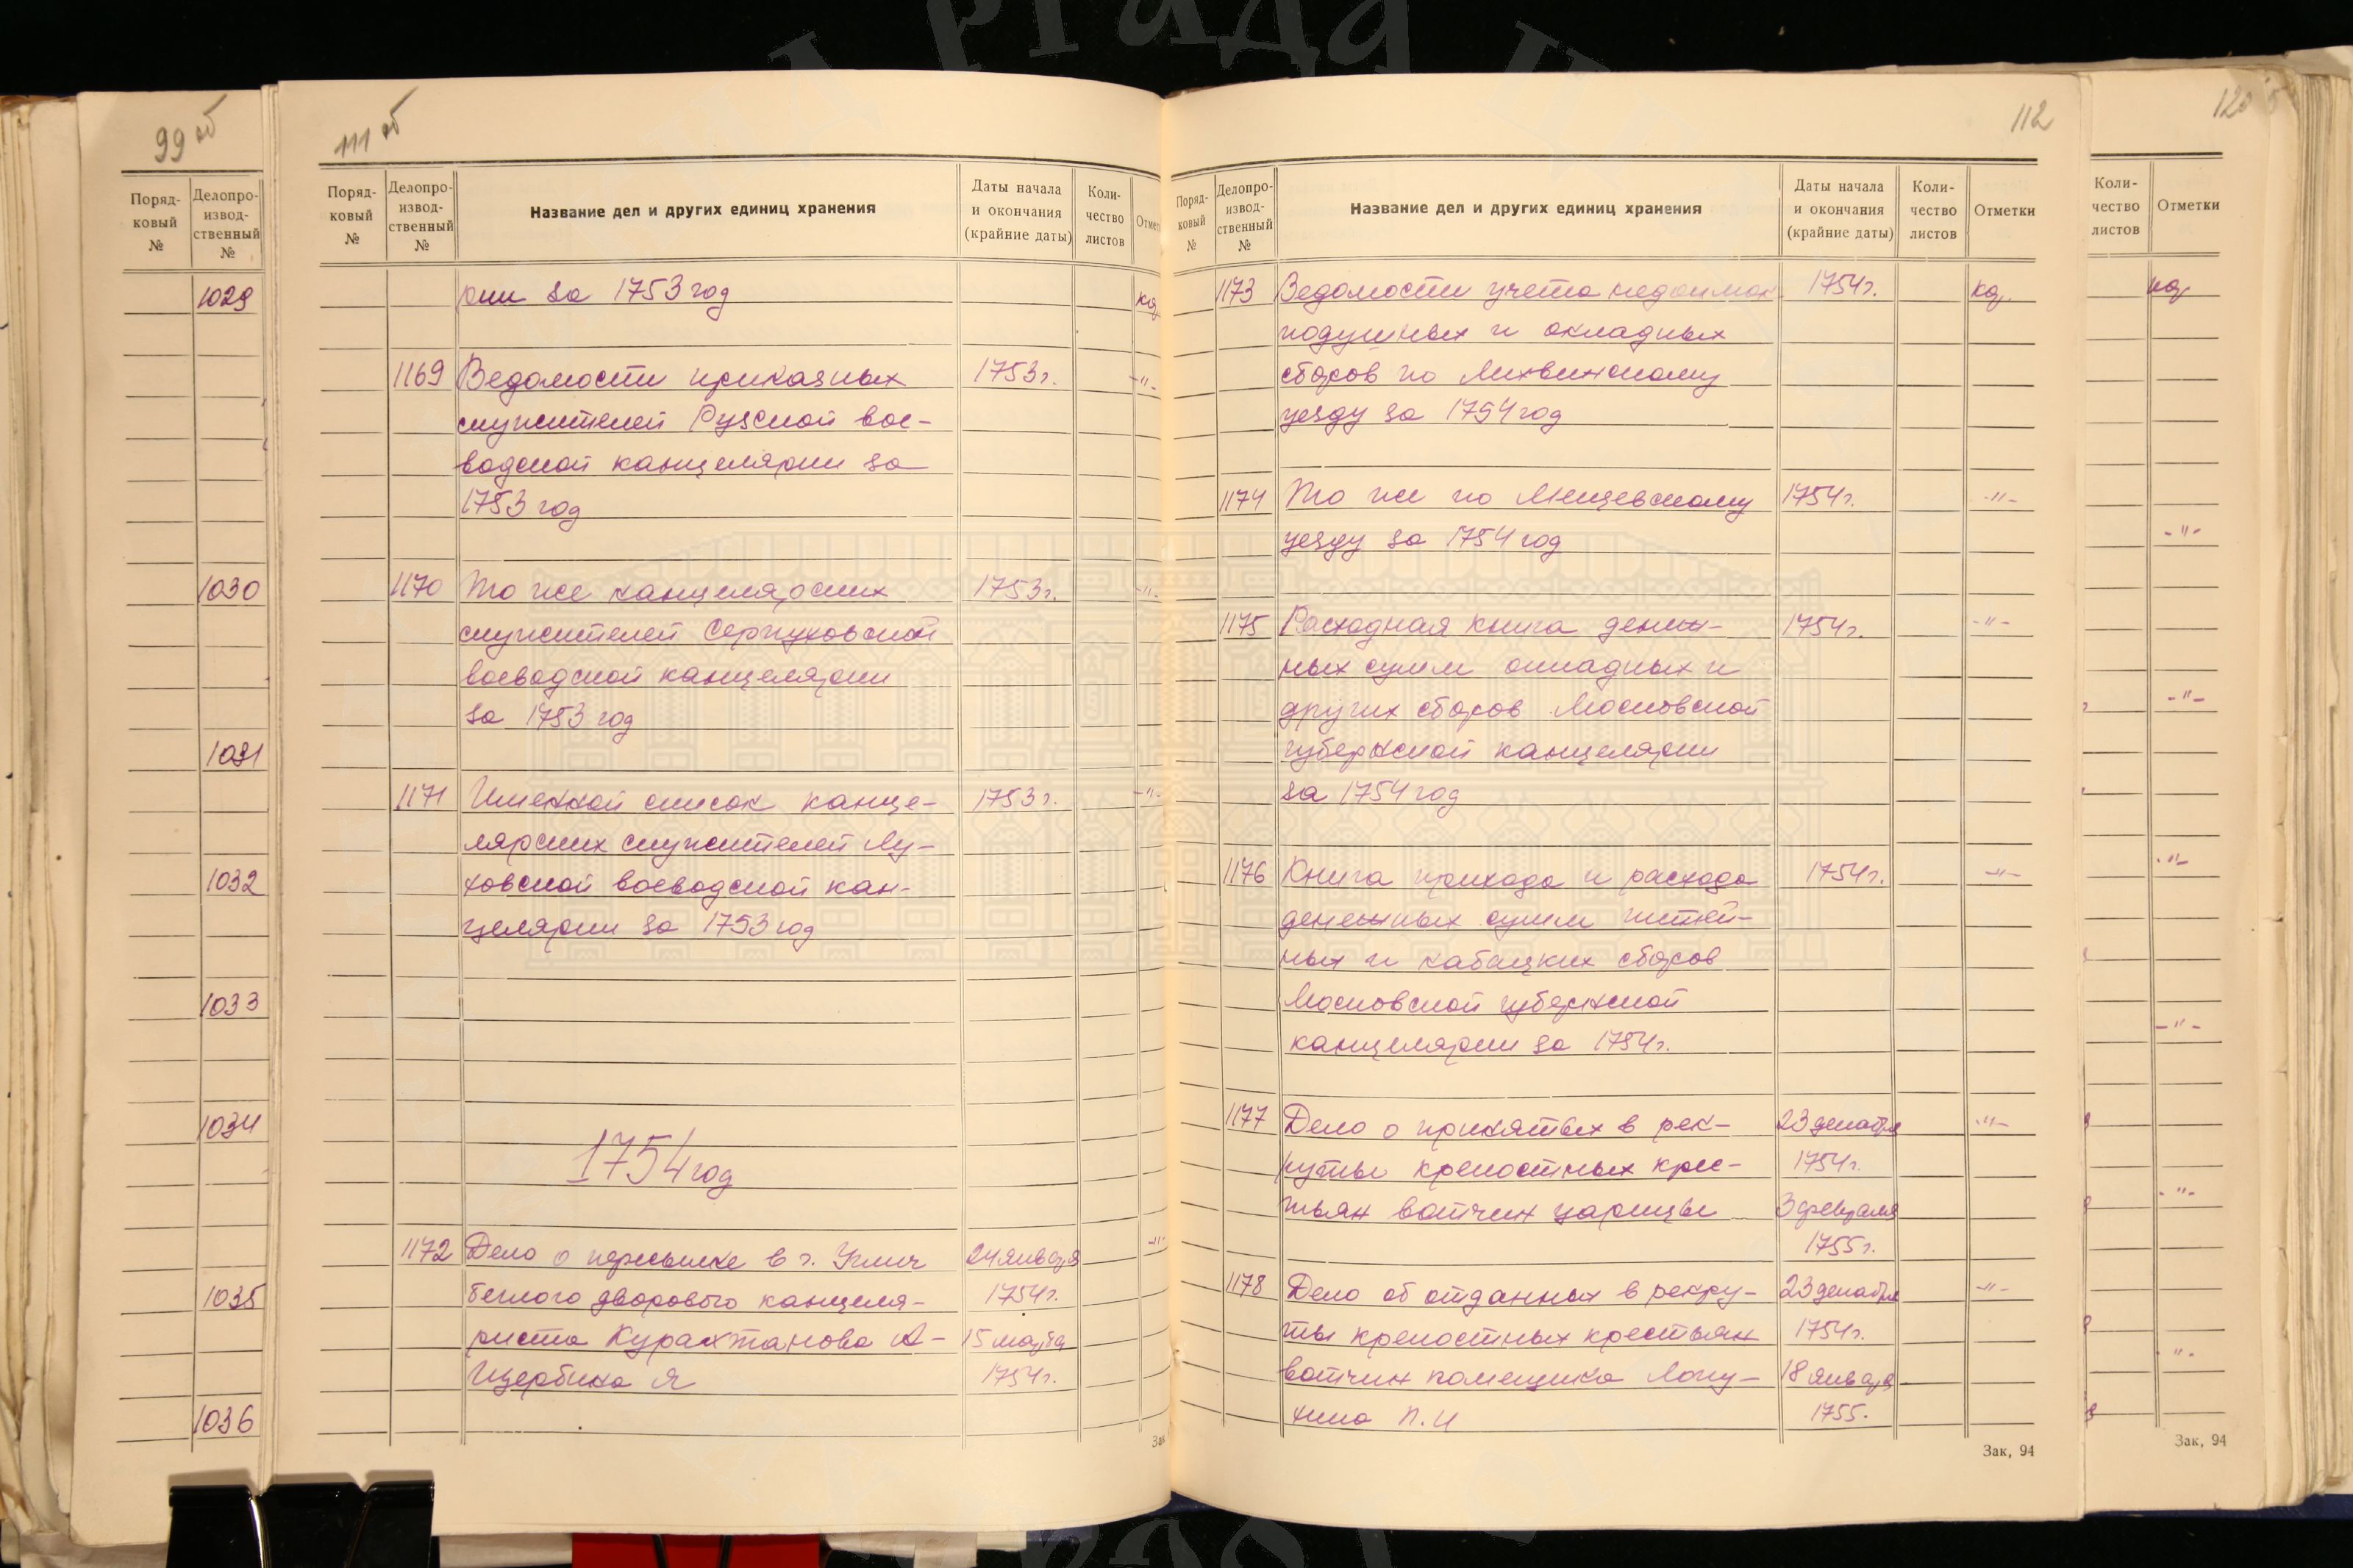 99 об
Поряд-
ковый
№
Делопро-
извод-
ственный
№
1029
1030
1031
1032
1033
1034
1035
1036
111 об
Поряд-
ковый
№
Делопро-
извод-
ственный
№
Название дел и других единиц хранения
Даты начала
и окончания
(крайние даты)
Коли-
чество
листов
Отмет
рии за 1753 год
1169 Ведомости приказных 1753 г. -"-
служителей Рузской вое-
водской канцелярии за
1753 год
1170 То же канцелярских 1753 г. -"-
служителей Серпуховской
воеводской канцелярии
за 1753 год
1171 Именной список канце- 1753 г. -"-
лярских служителей Лу-
ховской воеводской кан-
целярии за 1753 год
1754 год
1172 Дело о пересылке в г. Углич 24 января -"-
беглого дворового канцеля- 1754 г.
риста 15 марта
Щербина Я 1754 г.
Зак
112
Поряд-
ковый
№
Делопро-
извод-
ственный
№
Название дел и других единиц хранения
Даты начала
и окончания
(крайние даты)
Коли-
чество
листов
Отметки
1173 Ведомости учета недоимок 1754 г.
подушных и окладных
сборов по Лихвинскому
уезду за 1754 год
1174 То же по Мещевскому 1754 г. -"-
уезду за 1754 год
1175 Расходная книга денеж- 1754 г. -"-
ных сумм окладных и
других сборов Московской
губернской канцелярии
за 1754 год
1176 Книга прихода и расхода 1754 г. -"-
денежных сумм питей-
ных и кабацких сборов
Московской губернской
канцелярии за 1754 г.
1177 Дело о принятых в рек- 23 декабря -"-
руты крепостных крес- 1754 г.
тьян вотчин царицы 3 февраля
1755 г.
1178 Дело об отданных в рекру- 23 декабря -"-
ты крепостных крестьян 1754 г.
вотчин помещика Лопу- 18 января
хина П. И 1755.
Зак, 94
Коли-
чество
листов
Отметки
-"-
-"-
-"-
-"-
-"-
-"-
Зак, 94